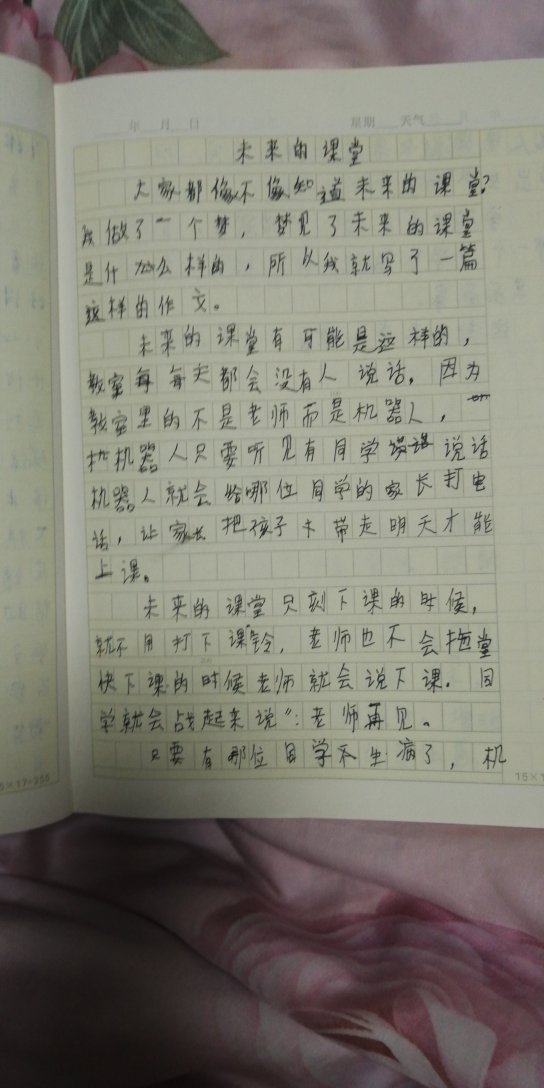 年 月 日 星期 天气
未来的课堂
大家都像不像知道未来的课堂?
我做了一个梦，梦见了未来的课堂
是什么样的，所以我就写了一篇
这样的作文。
未来的课堂有可能是这样的，
教室每每天都会没有人说话。因为
教室里的不是老师而是机器人，
机器人只要听见有同学说话
机器人就会给哪位同学的家长打电
话，让家长把孩子带走明天才能
上课。
未来的课堂只刻下课的时候，
就不用打下课铃，老师也不会拖堂
快下课的时候老师就会说下课。同
学就会战起来说“：老师再见。
只要有哪位同学不生病了，机
15×1
5×17=255